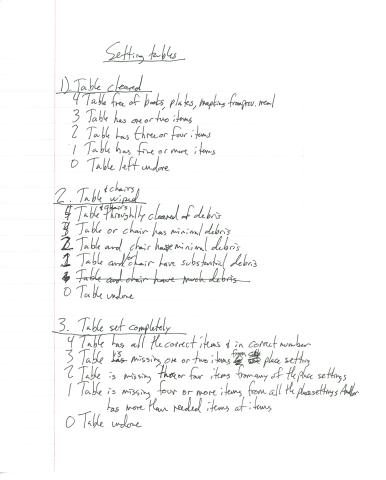 Setting tables
1) Table cleared
4 Table free of books, plates, napkins from prev. meal
3 Table has one or two items
2 Table has three or four items
1 Table has five or more items
0 Table left undone
2. Table & chairs wiped
4 Table & chairs throughly cleared of debris
3 Table or chair has minimal debris
2 Table and chair have minimal debris
1 Table or chair have substantial debris
Table and chair have much debris
0 Table undone
3. Table set completely
4 Table has all the correct items & in correct number
3 Table is missing one or two items from place setting
2 Table is missing three or four items from any of the place settings
1 Table is missing four or more items from all the place settings And/or
has more than needed items at items
0 Table undone